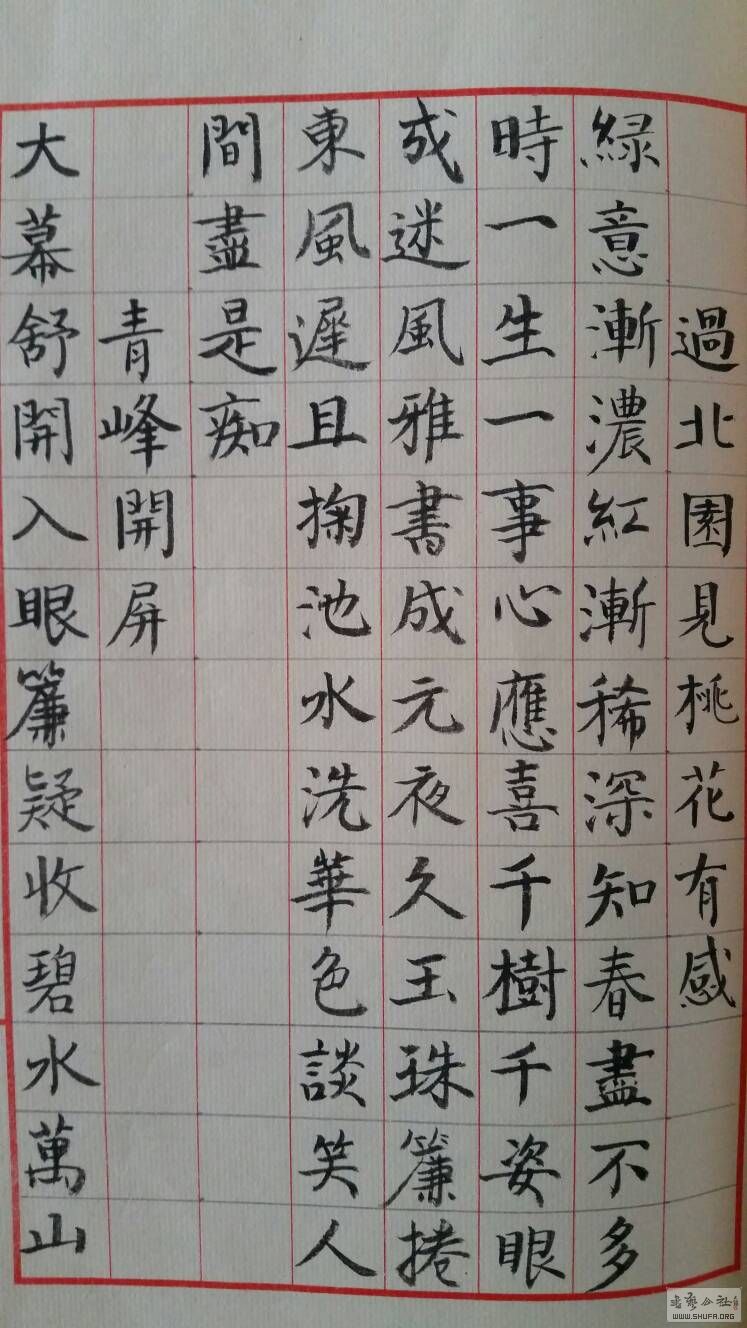 過北園見桃花有感
緑意漸濃紅漸稀深知春盡不多
時一生一事心應喜千樹千姿眼
成迷風雅書成元夜久玉珠簾捲
東風遲且掬池水洗華色談笑人
間盡是痴
青峰開屏
大幕舒開入眼簾疑收碧水萬山
WWW.SHUFA.ORG